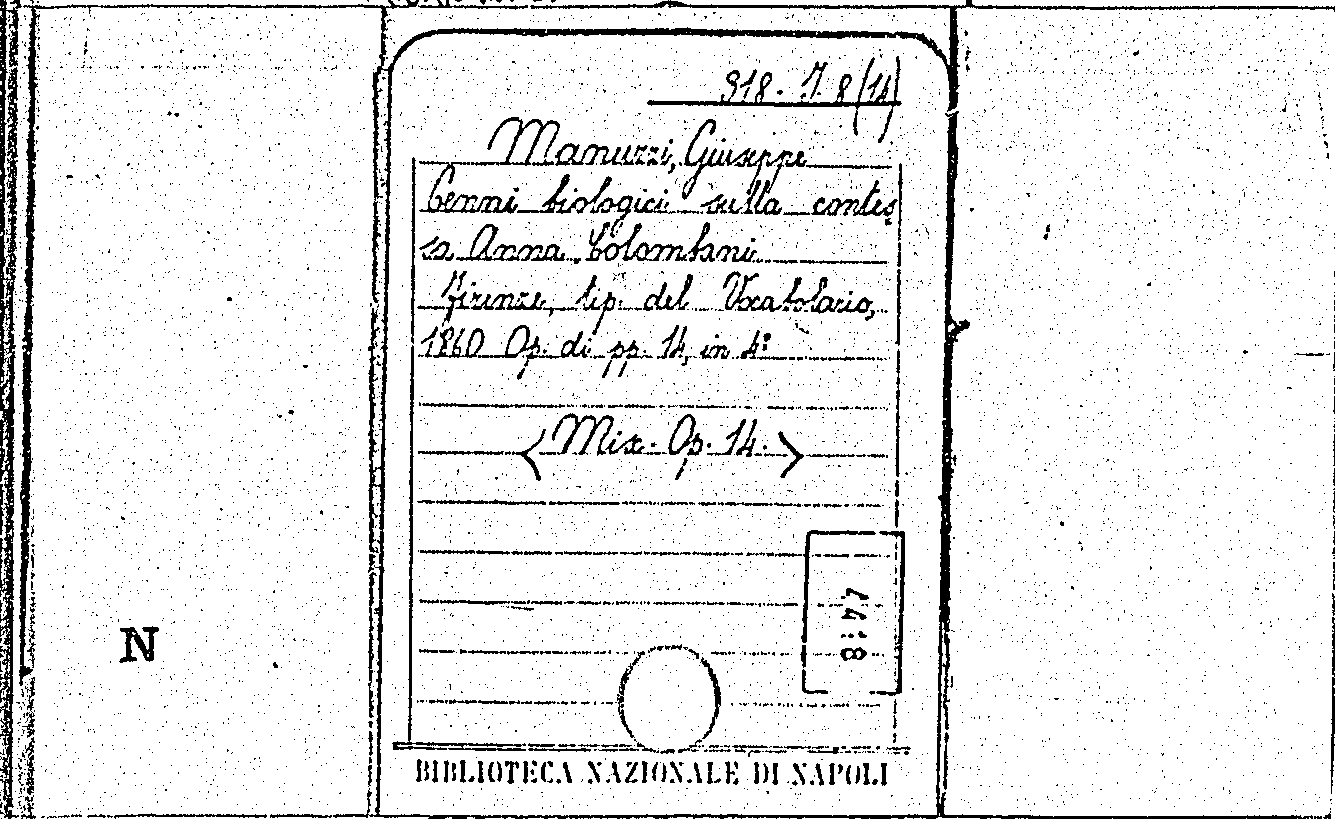 918. J. 8 (14)
Manuzzi, Giuseppe
Cenni biologici sulla contes
sa Anna Colombani
Firenze, tip. del Vocabolario,
1860 Op. di pp. 14, in 4º
< Mix. Op. 14. >
N
BIBLIOTECA NAZIONALE DI NAPOLI